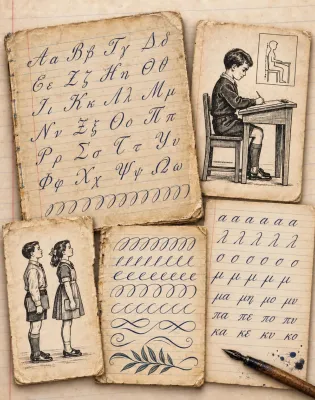 Αα Ββ Γγ Δδ
Εε Ζζ Ηη Θθ
Ιι Κκ Λλ Μμ
Νν Ξξ Οο Ππ
Ρρ Σσ Ττ Υυ
Φφ Χχ Ψψ Ωω
α α α α α α
λ λ λ λ λ
ο ο ο ο ο ο
μ μ μ μ μ
μα μη μο μυ
πα πε πο πυ
κα κε κυ κο